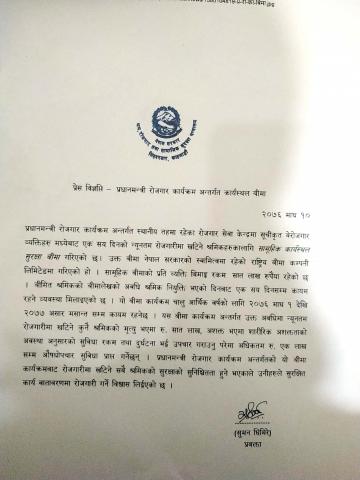 नेपाल सरकार
श्रम, रोजगार तथा सामाजिक सुरक्षा मन्त्रालय
सिंहदरबार, काठमाडौं
प्रेस विज्ञप्ति - प्रधानमन्त्री रोजगार कार्यक्रम अन्तर्गत कार्यस्थल बीमा
२०७६ माघ १०
प्रधानमन्त्री रोजगार कार्यक्रम अन्तर्गत स्थानीय तहमा रहेका रोजगार सेवा केन्द्रमा सूचीकृत बेरोजगार
व्यक्तिहरु मध्येबाट एक सय दिनको न्यूनतम रोजगारीमा खटिने श्रमिकहरुकालागि सामुहिक कार्यस्थल
सुरक्षा बीमा गरिएको छ । उक्त बीमा नेपाल सरकारको स्वामित्वमा रहेको राष्ट्रिय बीमा कम्पनी
लिमिटेडमा गरिएको हो । सामुहिक बीमाको प्रति व्यक्ति बिमाङ्क रकम सात लाख रुपैया रहेको छ
। बीमित श्रमिकको बीमालेखको अवधि श्रमिक नियुक्ति भएको दिनबाट एक सय दिनसम्म कायम
रहने व्यवस्था मिलाइएको छ । यो बीमा कार्यक्रम चालु आर्थिक बर्षको लागि २०७६ माघ १ देखि
२०७७ असार मसान्त सम्म कायम रहनेछ । यस बीमा कार्यक्रम अन्तर्गत उक्त अवधिमा न्यूनतम
रोजगारीमा खटिने कुनै श्रमिकको मृत्यु भएमा रु. सात लाख, अशक्त भएमा शारीरिक अशक्तताको
अवस्था अनुसारको सुविधा रकम तथा दुर्घटना भई उपचार गराउनु परेमा अधिकतम रु. एक लाख
सम्म औषधोपचार सुविधा प्राप्त गर्नेछन् । प्रधानमन्त्री रोजगार कार्यक्रम अन्तर्गतको यो बीमा
कार्यक्रमबाट रोजगारीमा खटिने सबै श्रमिकको सुरक्षाको सुनिश्चितता हुने भएकाले उनीहरुले सुरक्षित
कार्य बातावरणमा रोजगारी गर्ने विश्वास लिईएको छ ।
(सुमन घिमिरे)
प्रवक्ता